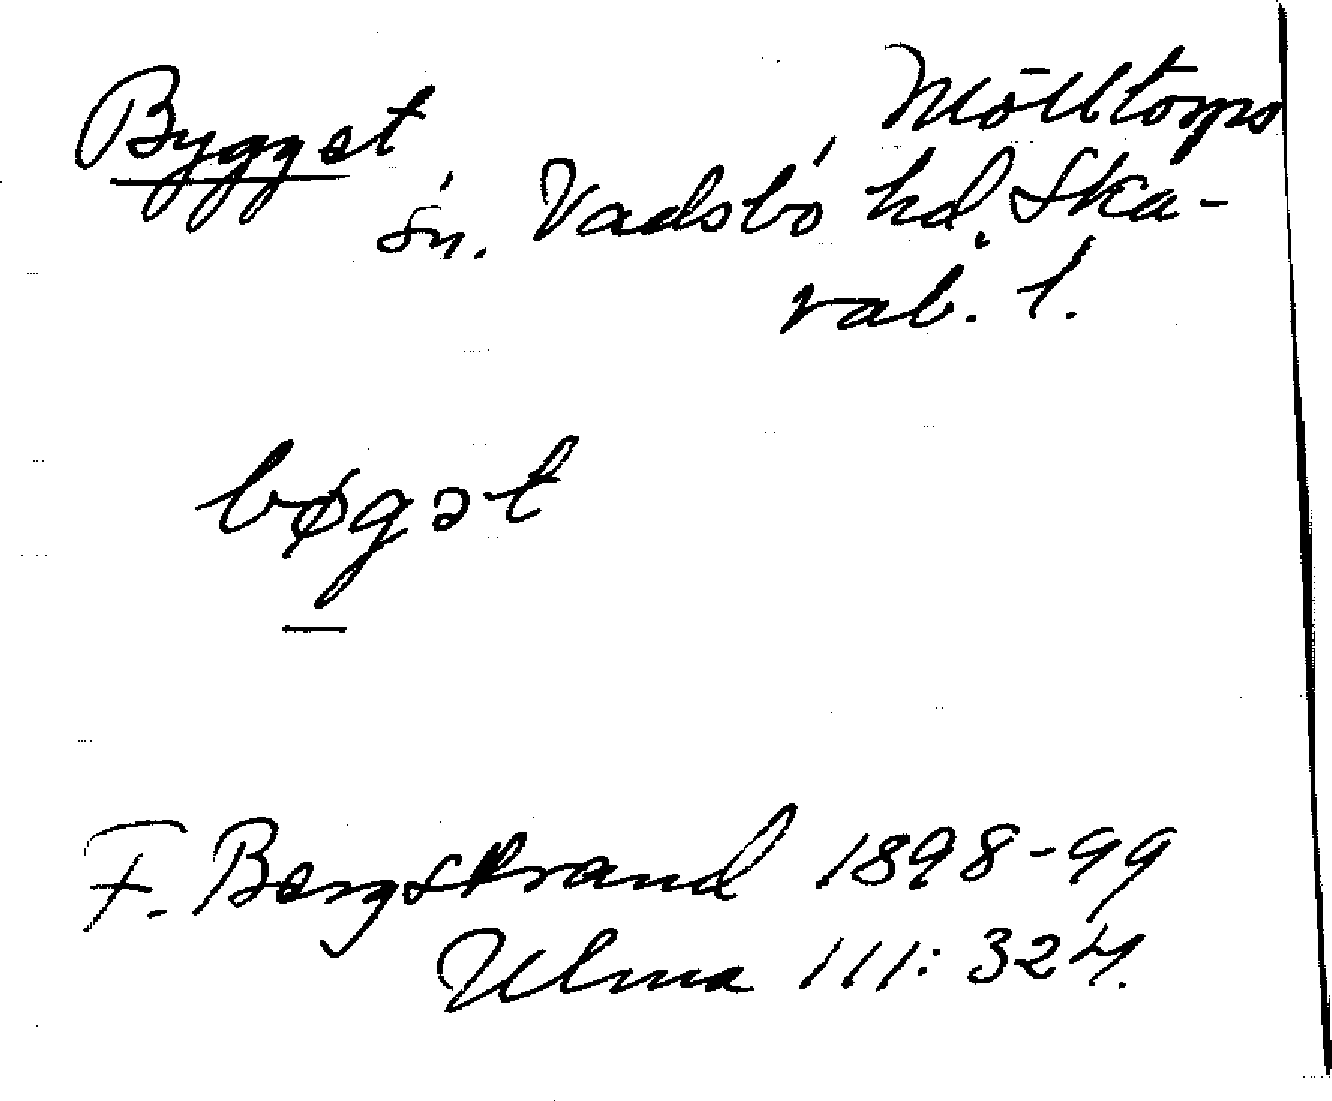 Bygget
Mölltorps
sn. Vadsbo hd. Ska-
rab. l.
bøgət
F. Bergstrand 1898-99
Ulma 111:324.